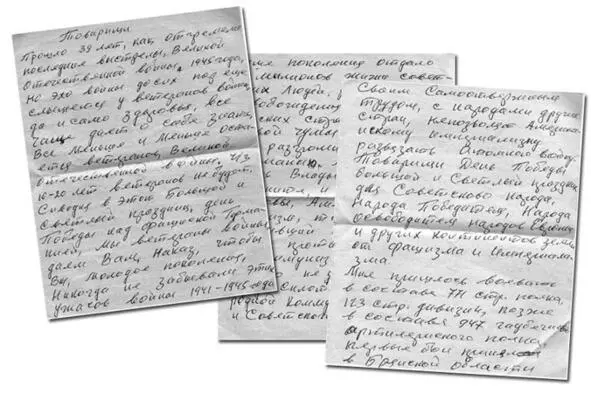 Товарищи
Прошло 39 лет, как отгремели
последние выстрелы, Великой
Отечественной войны, 1945 года,
Но эхо войны до сих пор еще
слышется у ветеранов войны,
да и само здоровье, все
чаще дает о себе знать,
Все меньше и меньше оста-
ется ветеранов, Великой
Отечественной войны. Из
10-20 лет ветеранов не будет.
Сиводня в этот большой и
светлый праздниц, день
Победы над фашиской Герма-
нией, Мы ветераны войны
даем Вам, Наказ, чтобы
Вы, молодое поколения,
Никогда не забывали этих
ужасов войны 1941-1945 года
поколения отдало
миллионов жизни совет-
ких Людей,
чумы
разгроми
родной Комму
и Советско
Своим Самоотверженным
трудом, с народами других
стран, непозволю Америка-
нскому империализму
развязать Атомную войну.
Товарищи День Победы
большой и Светлый праздник
для Советского народа,
Народа Победителя, Народа
освободителя народов Европы
и других континентов земли
от фашизма и империализ-
зма.
Мне пришлось воевать
в составе 71 стр. полка,
123 стр. дивизии, позже
в составе 947 гаубечного
артилериского полка,
первые бои принял
в Брянской области